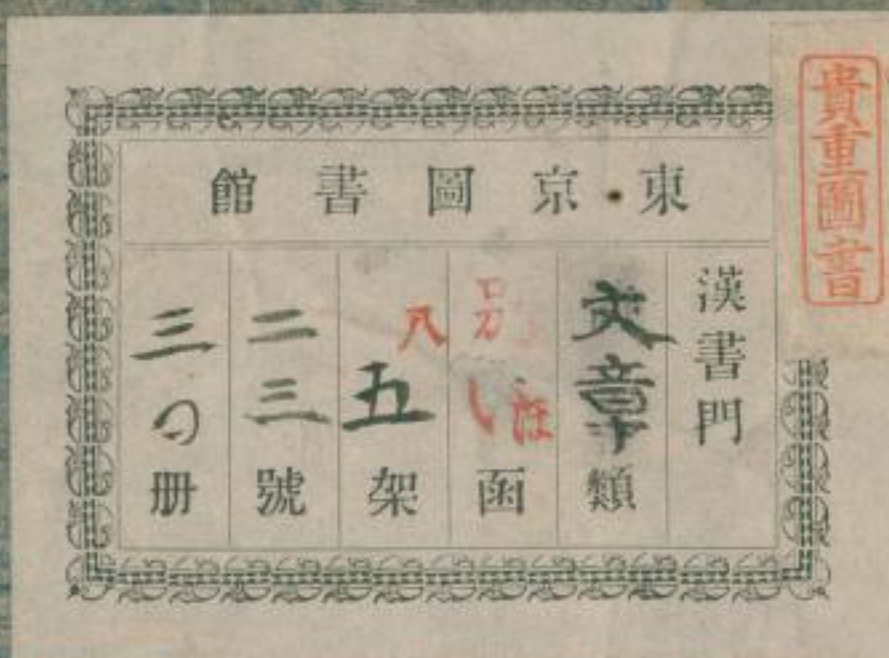 貴重圖書
東京圖書館
漢書門
文章類
函
八五架
二三號
三〇册